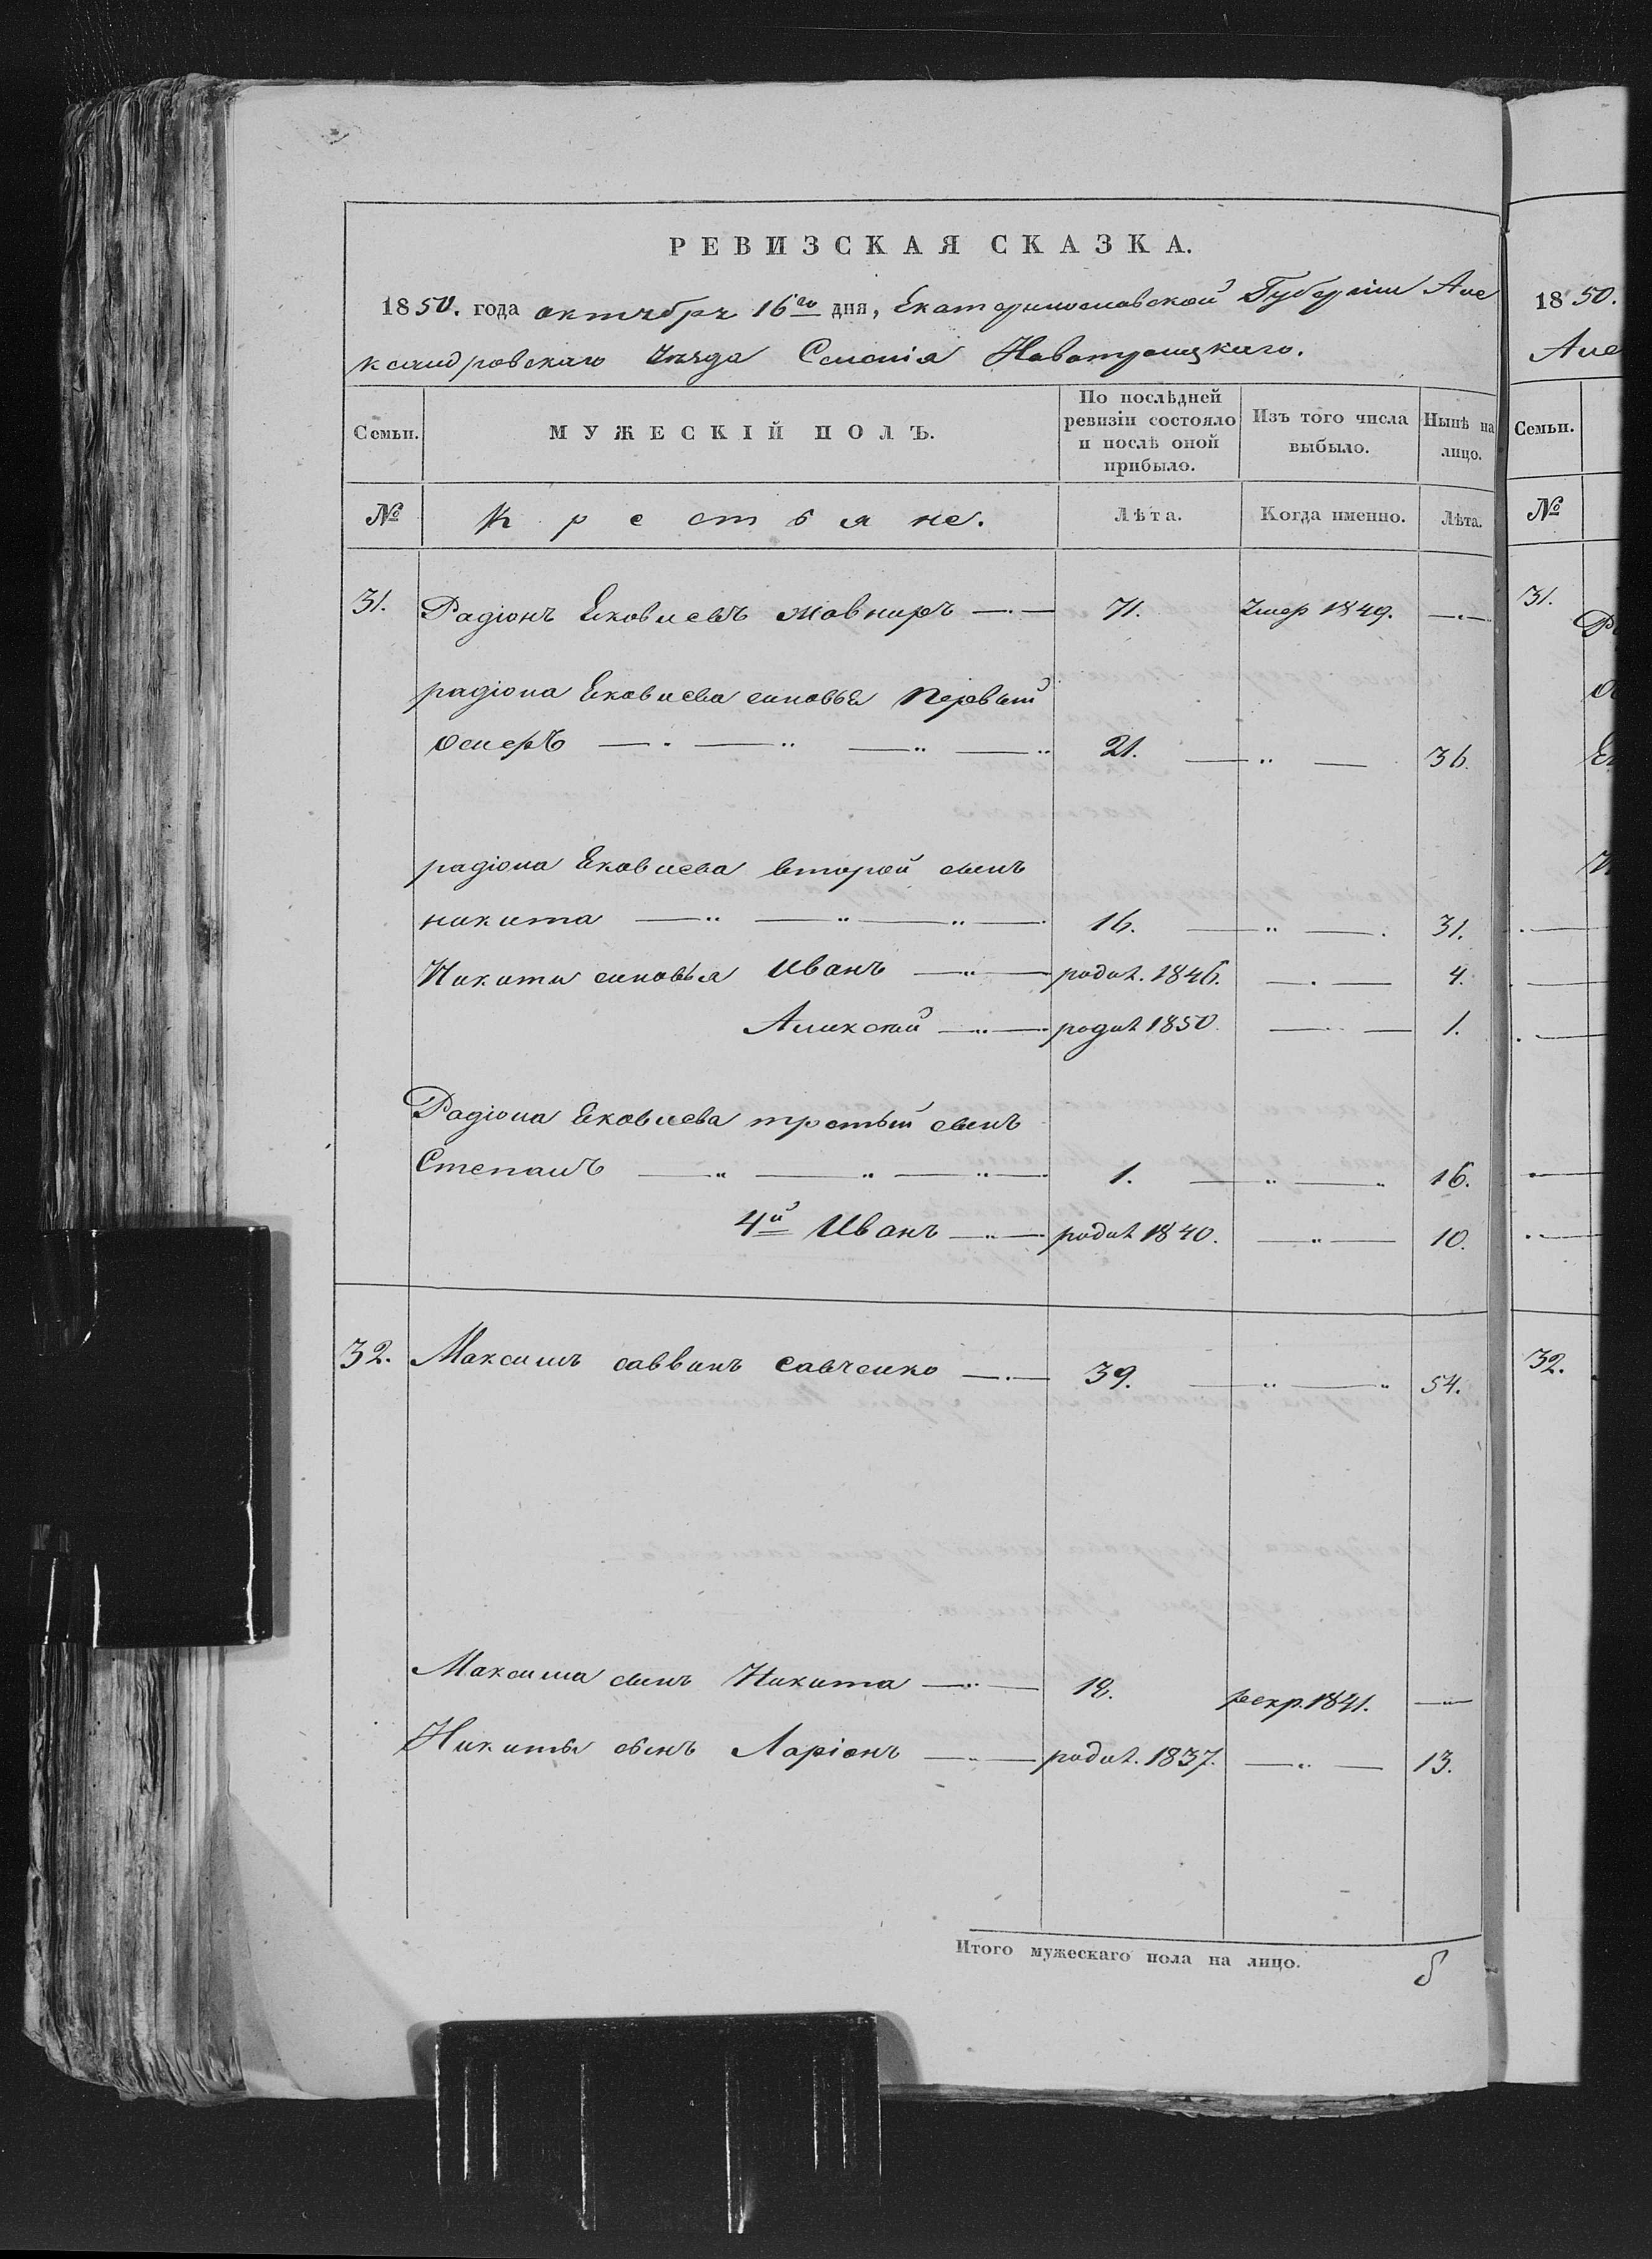 РЕВИЗСКАЯ СКАЗКА.
1850. года октября 16го дня, Екатеринославской Губерніи Але
ксандровскаго Уезда Селенія Новотроицкаго.
Семьи. МУЖЕСКІЙ ПОЛЪ. По послѣдней ревизіи состояло и послѣ оной прибыло. Изъ того числа выбыло. Нынѣ на лицо.
№ Крестьяне. Лѣта. Когда именно. Лѣта.
31. Радіонъ Яковлевъ жовниръ 71. Умер 1849.
радіона Яковлева сыновья Первый
21. 36.
радіона Яковлева второй сынъ
никита 16. 31.
Никиты сыновья Иванъ родил. 1846. 4.
Аликсей родил 1850. 1.
Радіона Яковлева третьій сынъ
Степанъ 1. 16.
4й Иванъ родил 1840. 10.
32. Максимъ саввинъ савченко 39. 54.
Максима сынъ Никита 18. рекр. 1841.
Никиты сынъ Ларіонъ родил. 1837. 13.
Итого мужескаго пола на лицо. 8
1850.
Але
Семьи.
№
31.
32.